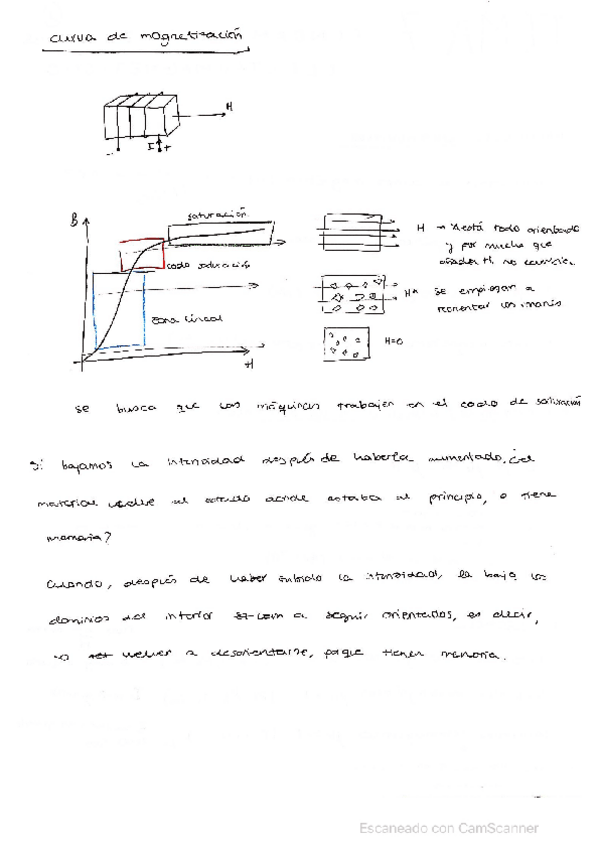 curva de magnetización
H
I +
-
B
saturación
codo saturación
zona lineal
H
H → Ya está todo orientado
y por mucho que
añadas H, no cambia.
H* se empiezan a
orientar los
H=0
se busca que las máquinas trabajen en el codo de saturación
Si bajamos la intensidad después de haberla aumentado, ¿el
material vuelve al estado donde estaba al principio, o tiene
memoria?
Cuando, después de haber subido la intensidad, la bajo los
dominios del interior a seguir orientados, es decir,
no volver a desorientarse, porque tienen memoria.
Escaneado con CamScanner